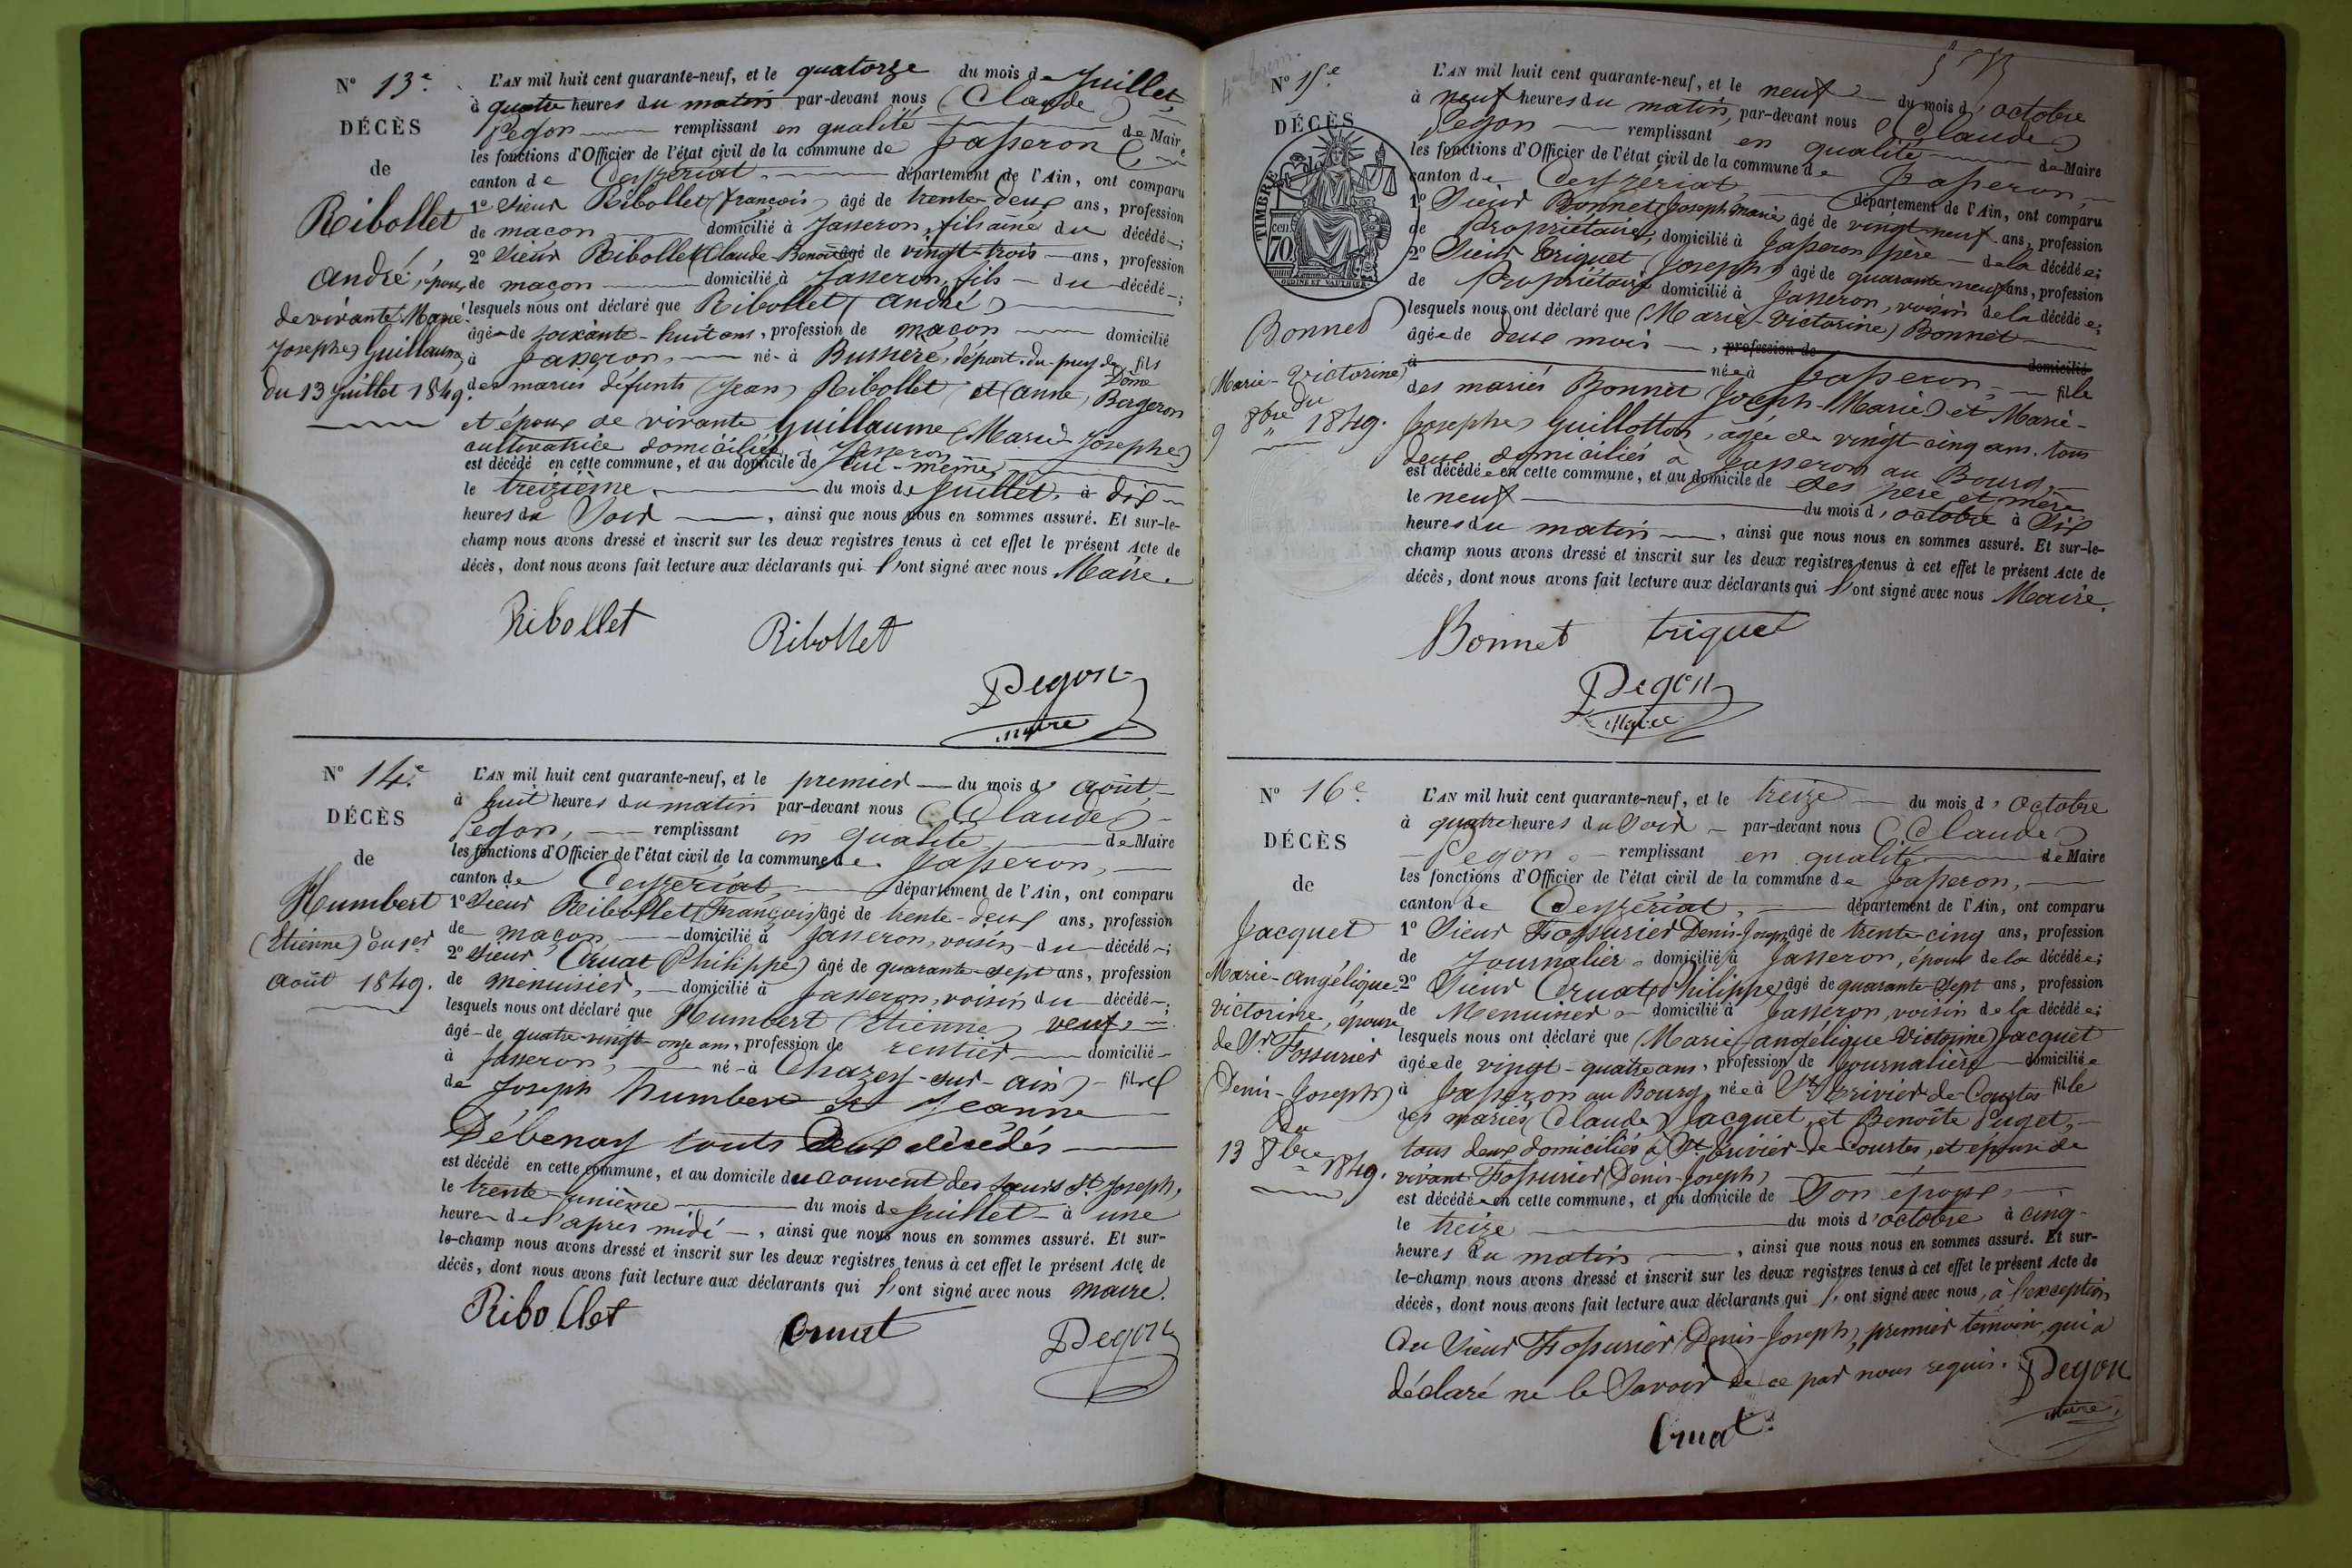 N° 13e.
DÉCÈS
de
Ribollet
André, époux
de vivante Marie-
Josephe Guillaume,
du 13 Juillet 1849.
L'AN mil huit cent quarante-neuf, et le quatorze du mois de Juillet,
à quatre heures du matin par-devant nous (Claude)
Pegon remplissant en qualité de Maire
les fonctions d'Officier de l'état civil de la commune de Jasseron,
canton de Ceyzériat, département de l'Ain, ont comparu
1° Sieur Ribollet (François) âgé de trente-deux ans, profession
de maçon domicilié à Jasseron, fils ainé du décédé;
2° Sieur Ribollet (Claude-Benoit) âgé de vingt-trois ans, profession
de maçon domicilié à Jasseron, fils du décédé;
lesquels nous ont déclaré que Ribollet (André)
âgé de soixante-huit ans, profession de maçon domicilié
à Jasseron, né à Bussere, départ. du puy de Dôme fils
des mariés défunts (Jean) Ribollet et (anne) Bergeron
et époux de vivante Guillaume (Marie-Josephe)
cultivatrice domiciliée à Jasseron
est décédé en cette commune, et au domicile de lui-même,
le treizième du mois de Juillet, à dix
heures du Soir, ainsi que nous nous en sommes assuré. Et sur-le-
champ nous avons dressé et inscrit sur les deux registres tenus à cet effet le présent Acte de
décès, dont nous avons fait lecture aux déclarants qui l'ont signé avec nous Maire.
Ribollet Ribollet
Pegon
maire
N° 14e.
DÉCÈS
de
Humbert
(Etienne) du 1er
août 1849.
L'AN mil huit cent quarante-neuf, et le premier du mois d'août,
à huit heures du matin par-devant nous (Claude)
Pegon, remplissant en qualité de Maire
les fonctions d'Officier de l'état civil de la commune de Jasseron,
canton de Ceyzériat, département de l'Ain, ont comparu
1° Sieur Ribollet (François) âgé de trente-deux ans, profession
de maçon domicilié à Jasseron, voisin du décédé;
2° Sieur Cruat (Philippe) âgé de quarante-sept ans, profession
de menuisier, domicilié à Jasseron, voisin du décédé;
lesquels nous ont déclaré que Humbert (Etienne) veuf,
âgé de quatre-vingt-onze ans, profession de rentier domicilié
à Jasseron, né à Chazey-sur-ain, fils
de Joseph humbert et Jeanne
Débenay touts deux décédés
est décédé en cette commune, et au domicile du couvent des sœurs St. Joseph,
le trente-unième du mois de Juillet à une
heure de l'apres midi, ainsi que nous nous en sommes assuré. Et sur-
le-champ nous avons dressé et inscrit sur les deux registres tenus à cet effet le présent Acte de
décès, dont nous avons fait lecture aux déclarants qui l'ont signé avec nous maire.
Ribollet Cruat Pegon
N° 15e
DÉCÈS
TIMBRE
cen 70
OUDINÉ ET VAUTHIER
Bonnet
(Marie-Victorine)
du
9 8bre 1849.
L'AN mil huit cent quarante-neuf, et le neuf du mois d'octobre
à neuf heures du matin, par-devant nous (Claude)
Pegon remplissant en qualité de Maire
les fonctions d'Officier de l'état civil de la commune de Jasseron,
canton de Ceyzériat, département de l'Ain, ont comparu
1° Sieur Bonnet (Joseph Marie) âgé de vingt-neuf ans, profession
de Propriétaire, domicilié à Jasseron père de la décédée;
2° Sieur Triquet (Joseph) âgé de quarante-neuf ans, profession
de Propriétaire domicilié à Jasseron, voisin de la décédée;
lesquels nous ont déclaré que (Marie-Victorine) Bonnet
âgée de deux mois, profession de domicilié
à née à Jasseron, fille
des mariés Bonnet (Joseph-Marie) et Marie-
Josephe Guillotton, âgée de vingt-cinq ans, tous
deux domiciliés à Jasseron au Bourg,
est décédée en cette commune, et au domicile de ses père et mère
le neuf du mois d'octobre à Six
heures du matin, ainsi que nous nous en sommes assuré. Et sur-le-
champ nous avons dressé et inscrit sur les deux registres tenus à cet effet le présent Acte de
décès, dont nous avons fait lecture aux déclarants qui l'ont signé avec nous Maire.
Bonnet triquet
Pegon
Maire
N° 16e.
DÉCÈS
de
Jacquet
Marie-angélique
Victorine, épouse
de Sr. Fossurier
Denis-Joseph)
Du
13 8bre 1849.
L'AN mil huit cent quarante-neuf, et le treize du mois d'octobre
à quatre heures du Soir par-devant nous (Claude)
Pegon remplissant en qualité de Maire
les fonctions d'Officier de l'état civil de la commune de Jasseron,
canton de Ceyzériat, département de l'Ain, ont comparu
1° Sieur Fossurier Denis-Joseph âgé de trente-cinq ans, profession
de Journalier domicilié à Jasseron, époux de la décédée;
2° Sieur Cruat (Philippe) âgé de quarante-Sept ans, profession
de Menuisier domicilié à Jasseron, voisin de la décédée;
lesquels nous ont déclaré que (Marie-angélique-Victorine) Jacquet
âgée de vingt-quatre ans, profession de Journalière domiciliée
à Jasseron au Bourg, née à St. Trivier-de-Courtes fille
des mariés (Claude) Jacquet, et Benoîte Puget,
tous deux domiciliés à St. Trivier-de-Courtes, et épouse de
vivant Fossurier (Denis-Joseph)
est décédée en cette commune, et au domicile de Son époux,
le treize du mois d'octobre à cinq
heures du matin, ainsi que nous nous en sommes assuré. Et sur-
le-champ nous avons dressé et inscrit sur les deux registres tenus à cet effet le présent Acte de
décès, dont nous avons fait lecture aux déclarants qui l'ont signé avec nous, à l'exception
du Sieur Fossurier (Denis-Joseph), premier témoin, qui a
déclaré ne le Savoir de ce par nous requis. Pegon
maire
Cruat